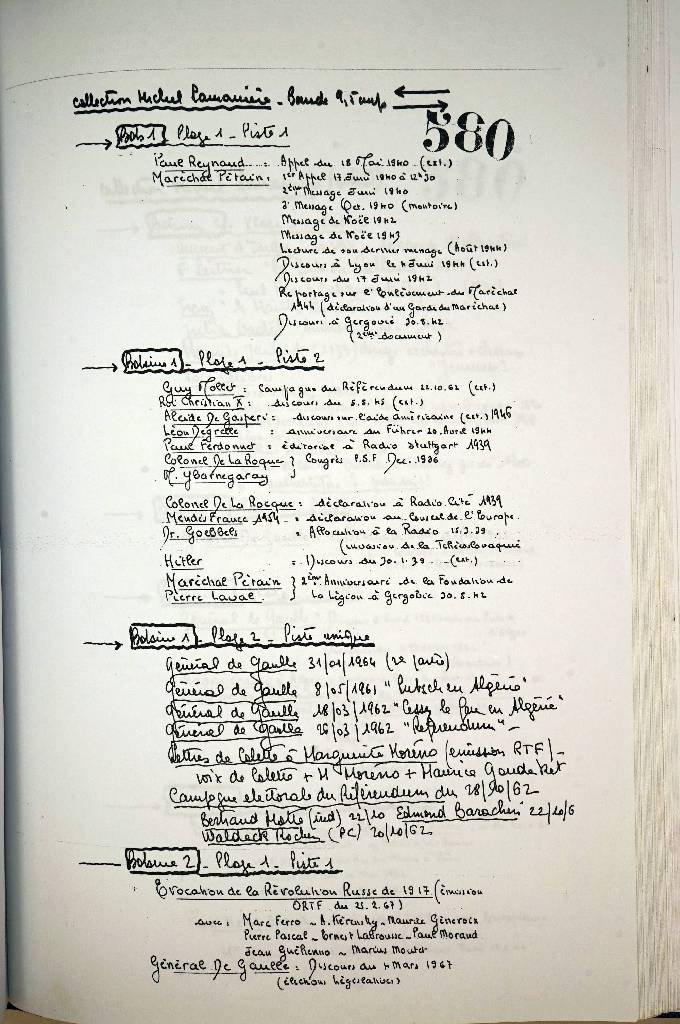 collection Michel Lamanière - Bande 9,5 cm/s
580
→ Bob 1 Plage 1 - Piste 1
Paul Reynaud : Appel du 18 Mai 1940 - (ext.)
Maréchal Pétain : 1er Appel 17 Juin 1940 à 12h30
2ème Message Juin 1940
3e Message Oct. 1940 (Montoire)
Message de Noël 1942
Message de Noël 1943
Lecture de son dernier message (Août 1944)
Discours à Lyon le 4 Juin 1944 (ext.)
Discours du 17 Juin 1942
Reportage sur l'Enlèvement du Maréchal
1944 (déclaration d'un Garde du Maréchal)
Discours à Gergovie 30.8.42
(2ème document)
→ Bobine 1 - Plage 1 - Piste 2
Guy Mollet : Campagne du Référendum 22.10.62 (ext.)
Roi Christian X : discours du 5.5.45 (ext.)
Alcide De Gasperi : discours sur l'aide américaine (ext.) 1946
Léon Degrelle : anniversaire du Führer 20. Avril 1944
Paul Ferdonnet : éditorial à Radio Stuttgart 1939
Colonel De La Roque } Congrès P.S.F Dec. 1936
M. Ybarnegaray }
Colonel De La Rocque : déclaration à Radio-Cité 1939
Mendès France 1954 : déclaration au Conseil de l'Europe.
Dr. Goebbels : Allocution à la Radio 15.3.39
(invasion de la Tchécoslovaquie
Hitler : Discours du 30.1.39 - (ext.)
Maréchal Pétain } 2ème Anniversaire de la Fondation de
Pierre Laval } la Légion à Gergovie 30.8.42
→ Bobine 1 - Plage 2 - Piste unique
Général de Gaulle 31/01/1964 (2e partie)
Général de Gaulle 8/05/1961 "Putsch en Algérie"
Général de Gaulle 18/03/1962 "Cessez le feu en Algérie"
Général de Gaulle 26/03/1962 "Référendum" -
Lettres de Colette à Marguerite Moréno (émission RTF) -
voix de Colette + M Moréno + Maurice Goudeket
Campagne electorale du Référendum du 28/10/62
Bertrand Motte (ind) 22/10 Edmond Barachin 22/10/6
Waldeck Rochet (PC) 20/10/62
Bobine 2 - Plage 1 - Piste 1
Evocation de la Révolution Russe de 1917 (émission
ORTF du 25.2.67)
avec : Marc Ferro - A. Kérensky - Maurice Genevoix
Pierre Pascal - Ernest Labrousse - Paul Morand
Jean Guéhenno - Marius Moutet
Général De Gaulle : Discours du 4 Mars 1967
(élections législatives)